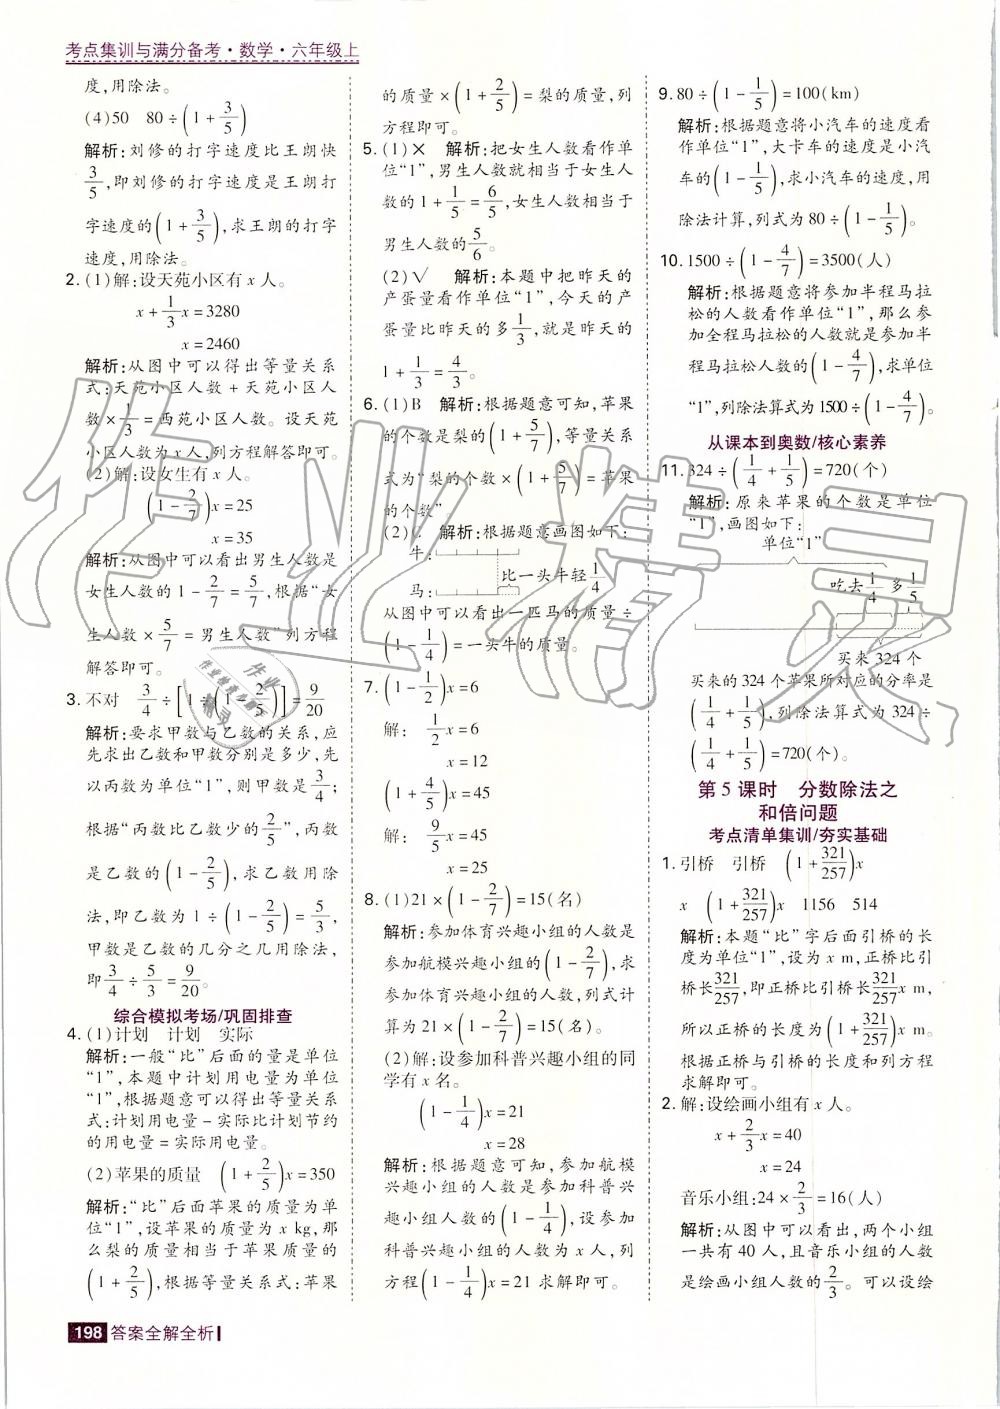 考点集训与满分备考·数学·六年级上
度,用除法。
(4)50 80÷(1+3/5)
解析:刘修的打字速度比王朗快
3/5,即刘修的打字速度是王朗打
字速度的(1+3/5),求王朗的打字
速度,用除法。
2.(1)解:设天苑小区有x人。
x+1/3x=3280
x=2460
解析:从图中可以得出等量关系
式:天苑小区人数+天苑小区人
数×1/3=西苑小区人数。设天苑
小区人数为x人,列方程解答即可。
(2)解:设女生有x人。
(1-2/7)x=25
x=35
解析:从图中可以看出男生人数是
女生人数的1-2/7=5/7,根据“女
生人数×5/7=男生人数”列方程
解答即可。
3.不对 3/4÷[1÷(1-2/5)]=9/20
解析:要求甲数与乙数的关系,应
先求出乙数和甲数分别是多少,先
以丙数为单位“1”,则甲数是3/4;
根据“丙数比乙数少的2/5”,丙数
是乙数的(1-2/5),求乙数用除
法,即乙数为1÷(1-2/5)=5/3,
甲数是乙数的几分之几用除法,
即3/4÷5/3=9/20。
综合模拟考场/巩固排查
4.(1)计划 计划 实际
解析:一般“比”后面的量是单位
“1”,本题中计划用电量为单位
“1”,根据题意可以得出等量关系
式:计划用电量-实际比计划节约
的用电量=实际用电量。
(2)苹果的质量 (1+2/5)x=350
解析:“比”后面苹果的质量为单
位“1”,设苹果的质量为x kg,那
么梨的质量相当于苹果质量的
(1+2/5),根据等量关系式:苹果
的质量×(1+2/5)=梨的质量,列
方程即可。
5.(1)× 解析:把女生人数看作单
位“1”,男生人数就相当于女生人
数的1+1/5=6/5,女生人数相当于
男生人数的5/6。
(2)√ 解析:本题中把昨天的
产蛋量看作单位“1”,今天的产
蛋量比昨天的多1/3,就是昨天的
1+1/3=4/3。
6.(1)B 解析:根据题意可知,苹果
的个数是梨的(1+5/7),等量关系
式为“梨的个数×(1+5/7)=苹果
的个数”
(2) 解析:根据题意画图如下:
牛:
比一头牛轻1/4
马:
从图中可以看出一匹马的质量÷
(1-1/4)=一头牛的质量。
7.(1-1/2)x=6
解: 1/2x=6
x=12
(1+4/5)x=45
解: 9/5x=45
x=25
8.(1)21×(1-2/7)=15(名)
解析:参加体育兴趣小组的人数是
参加航模兴趣小组的(1-2/7),求
参加体育兴趣小组的人数,列式计
算为21×(1-2/7)=15(名)。
(2)解:设参加科普兴趣小组的同
学有x名。
(1-1/4)x=21
x=28
解析:根据题意可知,参加航模
兴趣小组的人数是参加科普兴
趣小组人数的(1-1/4),设参加
科普兴趣小组的人数为x人,列
方程(1-1/4)x=21求解即可。
9.80÷(1-1/5)=100(km)
解析:根据题意将小汽车的速度看
作单位“1”,大卡车的速度是小汽
车的(1-1/5),求小汽车的速度,用
除法计算,列式为80÷(1-1/5)。
10.1500÷(1-4/7)=3500(人)
解析:根据题意将参加半程马拉
松的人数看作单位“1”,那么参
加全程马拉松的人数就是参加半
程马拉松人数的(1-4/7),求单位
“1”,列除法算式为1500÷(1-4/7)。
从课本到奥数/核心素养
11.324÷(1/4+1/5)=720(个)
解析:原来苹果的个数是单位
“1”,画图如下:
单位“1”
吃去1/4 多1/5
买来324个
买来的324个苹果所对应的分率是
(1/4+1/5),列除法算式为324÷
(1/4+1/5)=720(个)。
第5课时 分数除法之
和倍问题
考点清单集训/夯实基础
1.引桥 引桥 (1+321/257)x
x (1+321/257)x 1156 514
解析:本题“比”字后面引桥的长
度为单位“1”,设为x m,正桥比引
桥长321/257,即正桥比引桥长321/257x m,
所以正桥的长度为(1+321/257)x m。
根据正桥与引桥的长度和列方程
求解即可。
2.解:设绘画小组有x人。
x+2/3x=40
x=24
音乐小组:24×2/3=16(人)
解析:从图中可以看出,两个小组
一共有40人,且音乐小组的人数
是绘画小组人数的2/3。可以设绘
198 答案全解全析
作业精灵